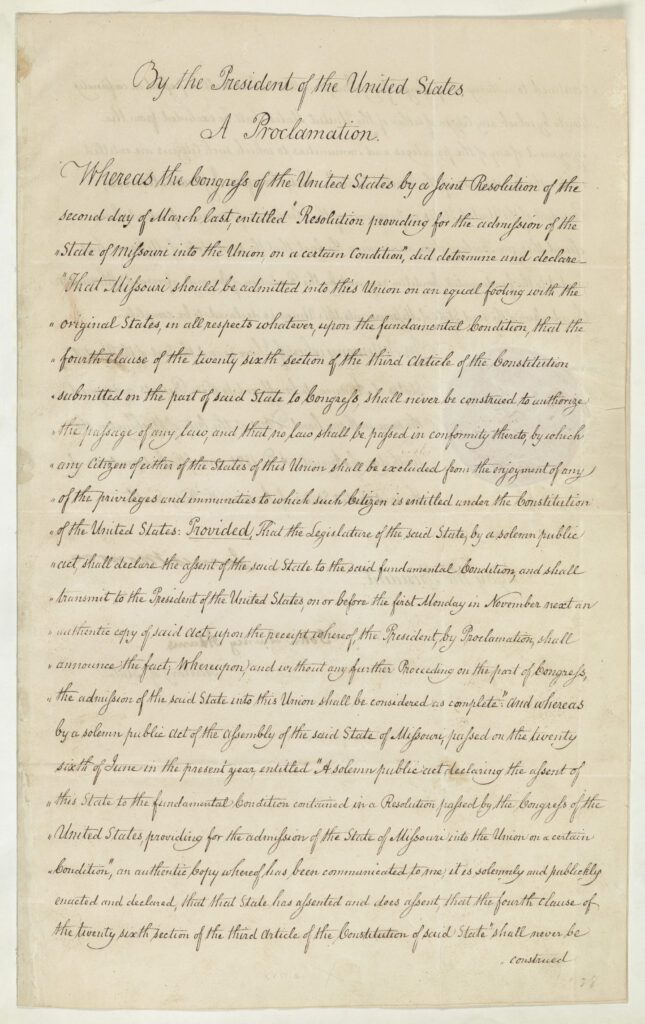 By the President of the United States.
A Proclamation.
Whereas the Congress of the United States by a Joint Resolution of the
second day of March last, entitled "Resolution providing for the admission of the
"State of Missouri into the Union, on a certain Condition", did determine and declare—
"That Missouri should be admitted into this Union on an equal footing with the
"original States, in all respects whatever, upon the fundamental Condition, that the
"fourth clause of the twenty sixth section of the third article of the Constitution
"submitted on the part of said State to Congress shall never be construed to authorize
"the passage of any law, and that no law shall be passed in conformity thereto, by which
"any Citizen of either of the States of this Union shall be excluded from the enjoyment of any
"of the privileges and immunities to which such Citizen is entitled under the Constitution
"of the United States: Provided, That the Legislature of the said State, by a solemn public
"act shall declare the assent of the said State to the said fundamental Condition, and shall
"transmit to the President of the United States, on or before the first Monday in November next an
"authentic copy of said act; upon the receipt whereof, the President, by Proclamation, shall
"announce the fact; Whereupon, and without any further Proceeding on the part of Congress,
"the admission of the said State into this Union shall be considered as complete": and whereas
by a solemn public act of the assembly of the said State of Missouri, passed on the twenty
sixth of June in the present year, entitled "A solemn public act declaring the assent of
"this State to the fundamental Condition contained in a Resolution passed by the Congress of the
"United States, providing for the admission of the State of Missouri into the Union on a certain
"Condition", an authentic Copy whereof has been communicated to me, it is solemnly and publickly
enacted and declared, that that State has assented and does assent, that the fourth clause of
the twenty sixth section of the third article of the Constitution of said State "shall never be
construed